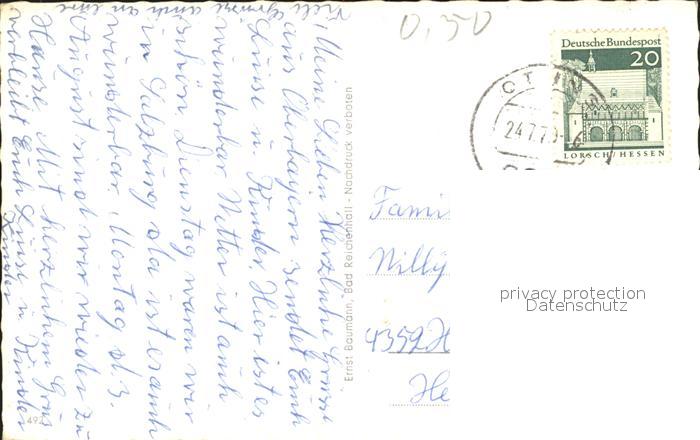 Meine Lieben Herzliche Grüsse
aus Oberbayern sendet Euch
Luise u. Kinder. Hier ist es
wunderbar Wetter ist auch
schön Dienstag waren wir
in Salzburg da ist es auch
wunderbar. Montag d. 3.
August sind wir wieder zu
Hause. Mit herzlichem Grus
verbleibt Euch Luise u Kinder
Viele Grüsse auch an
Kinder
Ernst Baumann, Bad Reichenhall - Nachdruck verboten
492
0,50
Deutsche Bundespost
20
LORSCH/HESSEN
24.7.70
Fami
Willy
4352 H
He
privacy protection
Datenschutz